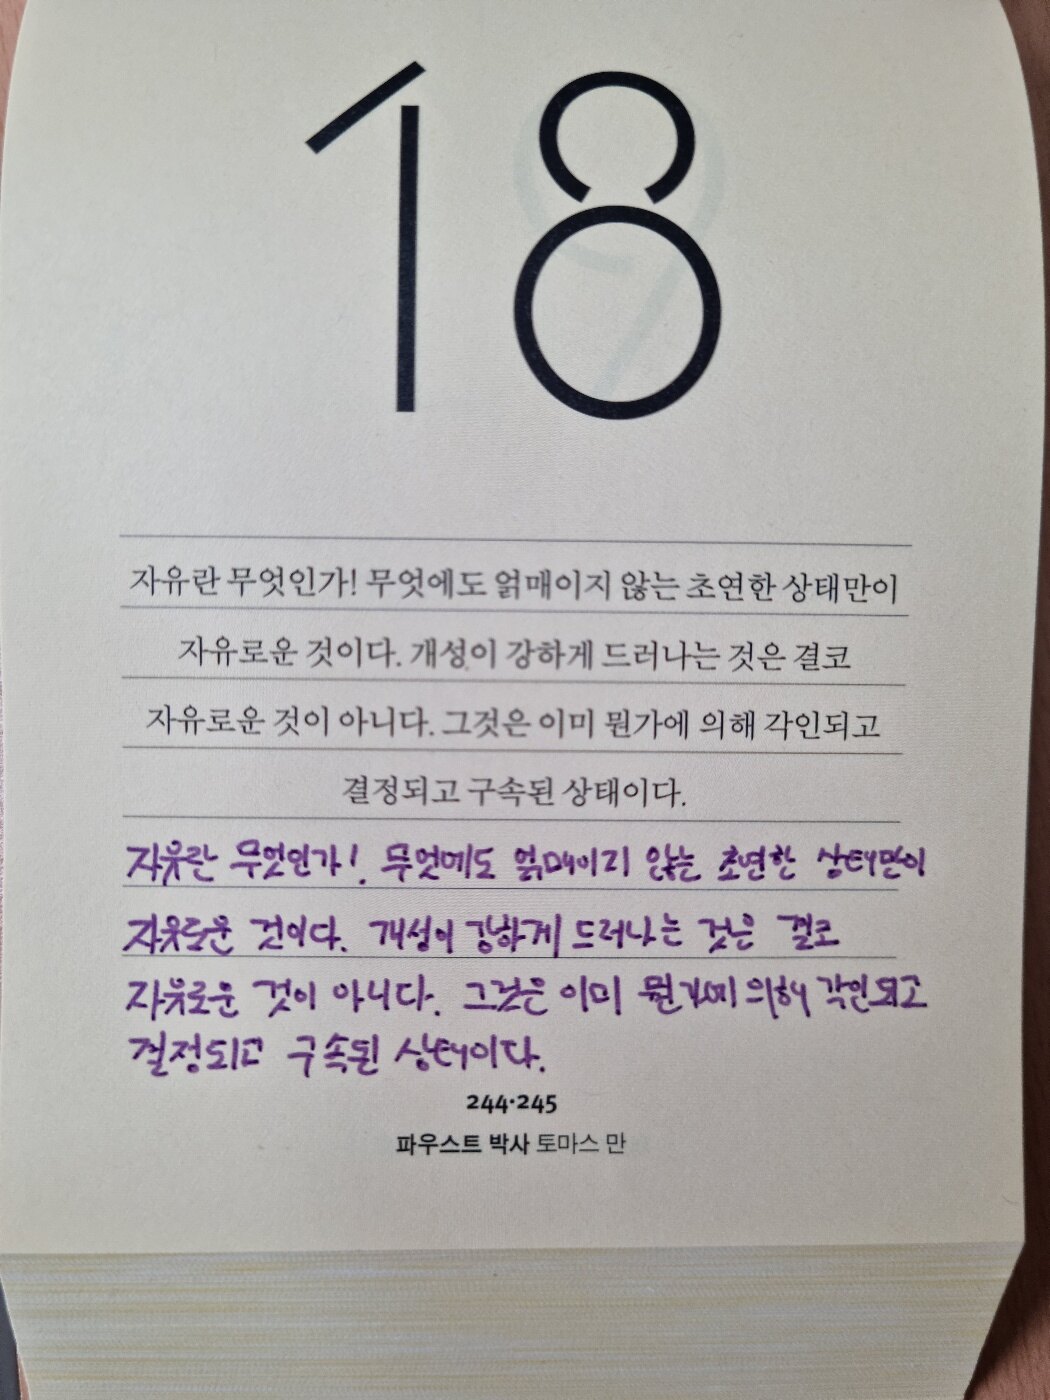 18
자유란 무엇인가! 무엇에도 얽매이지 않는 초연한 상태만이
자유로운 것이다. 개성이 강하게 드러나는 것은 결코
자유로운 것이 아니다. 그것은 이미 뭔가에 의해 각인되고
결정되고 구속된 상태이다.
자유란 무엇인가! 무엇에도 얽매이지 않는 초연한 상태만이
자유로운 것이다. 개성이 강하게 드러나는 것은 결코
자유로운 것이 아니다. 그것은 이미 뭔가에 의해 각인되고
결정되고 구속된 상태이다.
244·245
파우스트 박사 토마스 만